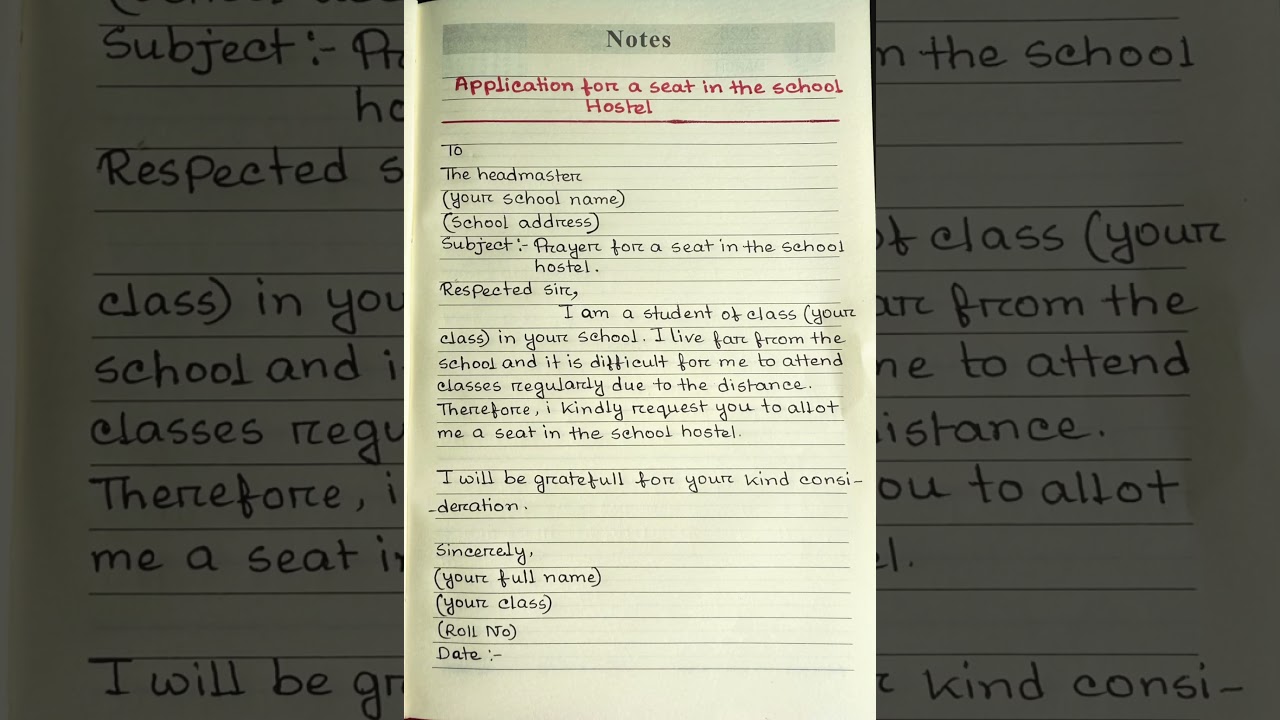 Notes
Application for a seat in the school
Hostel
To
The headmaster
(your school name)
(school address)
Subject :- Prayer for a seat in the school
hostel.
Respected sir,
I am a student of class (your
class) in your school. I live far from the
school and it is difficult for me to attend
classes regularly due to the distance.
Therefore, i kindly request you to allot
me a seat in the school hostel.
I will be gratefull for your kind consi-
-deration.
Sincerely,
(your full name)
(your class)
(Roll No)
Date :-